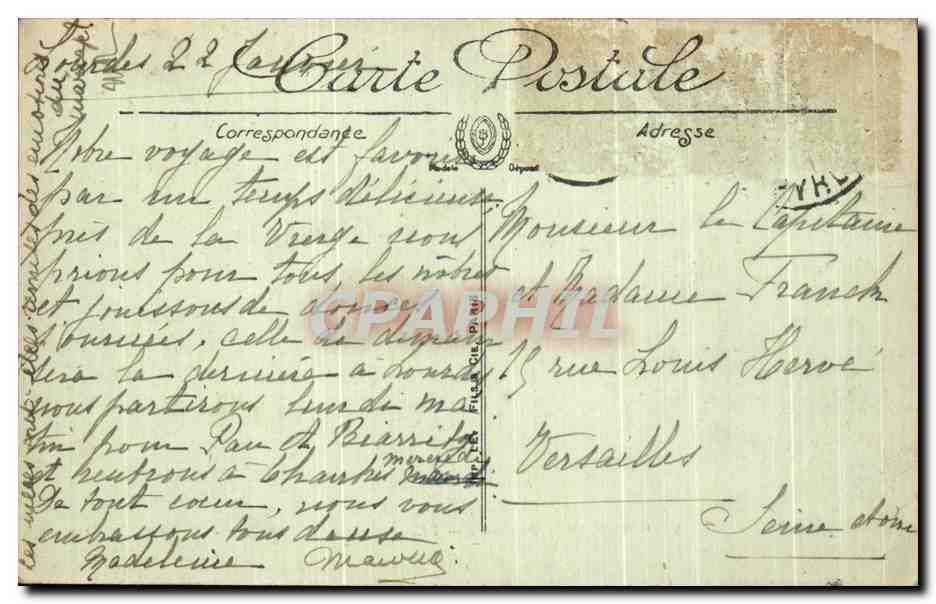 Carte Postale
Correspondance
Adresse
Modèle Déposé
Lourdes 22 Janvier
Notre voyage est favorisé
par un temps délicieux
près de la Vierge nous
prions pour tous les nôtres
et jouissons de douces
journées, celle de demain
sera la dernière à Lourdes
nous partirons lundi ma
tin pour Pau et Biarritz
et rentrons à Chartres mercredi
De tout cœur, nous vous
embrassons tous deux
Madeleine Maurice
Monsieur le Capitaine
et Madame Franck
15 rue Louis Hervé
Versailles
Seine et Oise
FILS & CIE. PARIS
CPAPHIL